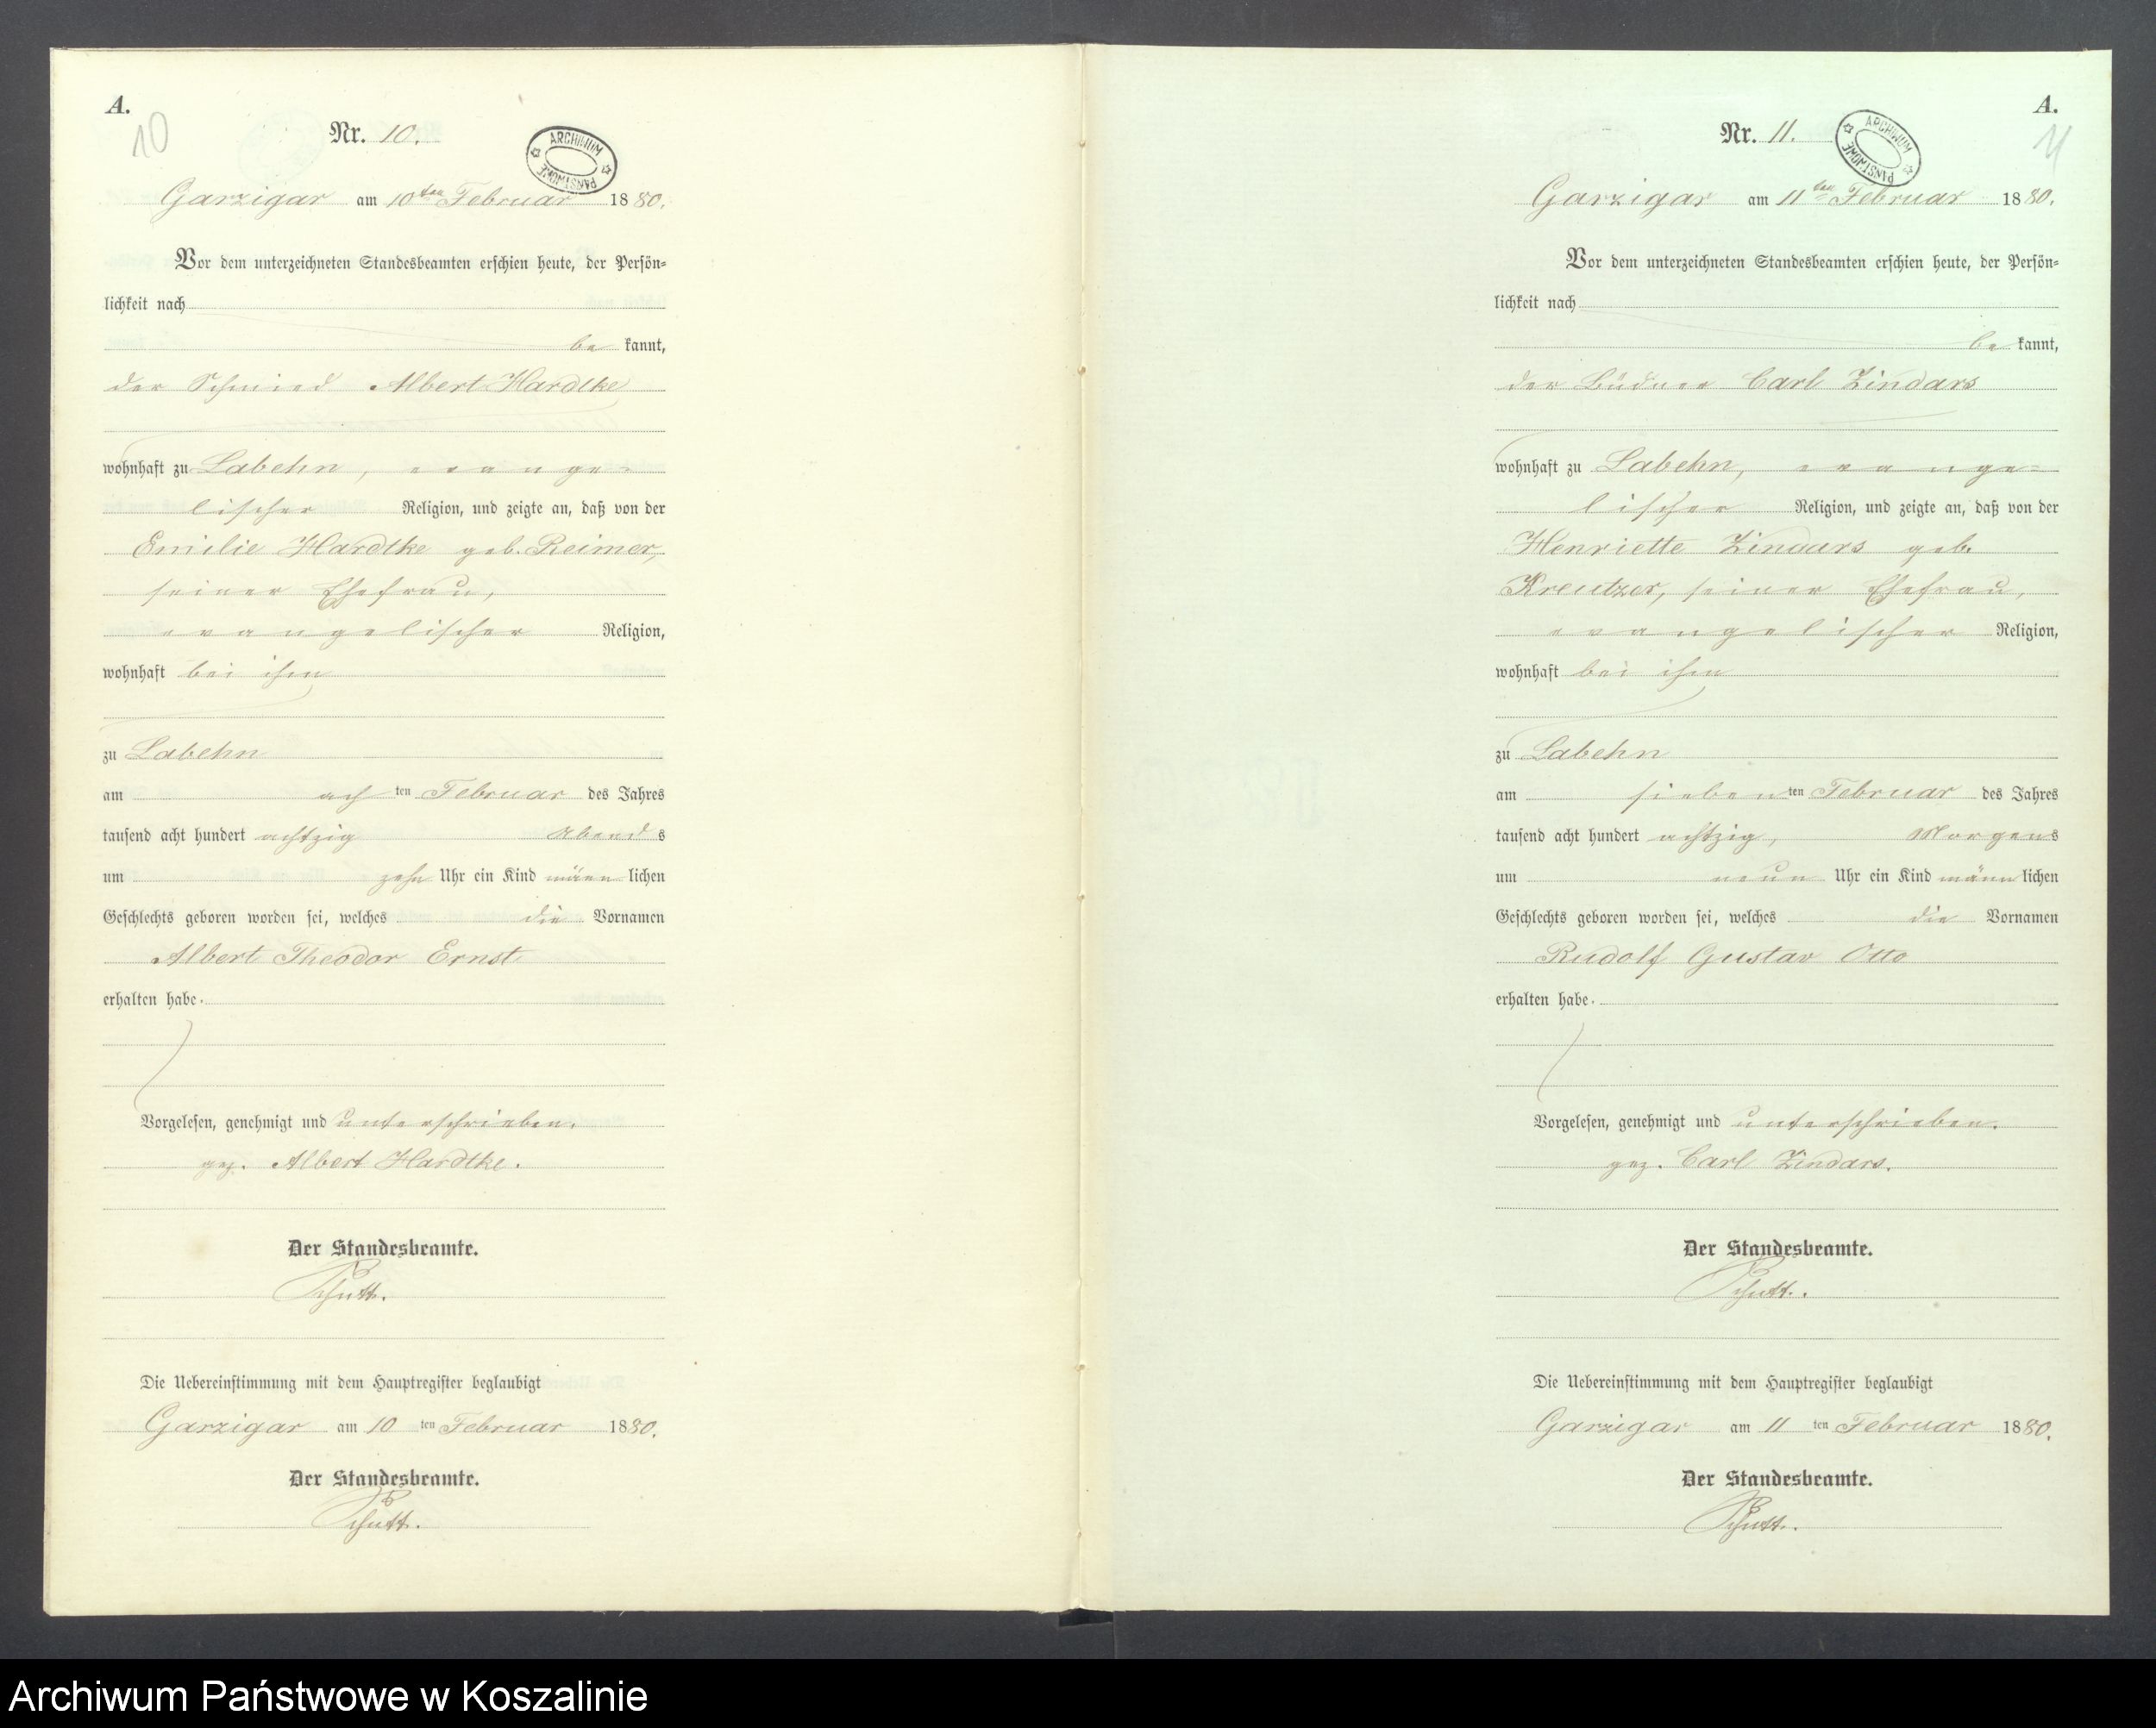 A.
10
Nr. 10.
ARCHIWUM PAŃSTWOWE
Garzigar am 10ten Februar 1880.
Vor dem unterzeichneten Standesbeamten erschien heute, der Persön=
lichkeit nach
be kannt,
der Schmied Albert Hardtke
wohnhaft zu Labehn, evange-
lischer Religion, und zeigte an, daß von der
Emilie Hardtke geb. Reimer,
seiner Ehefrau,
evangelischer Religion,
wohnhaft bei ihm
zu Labehn
am ach ten Februar des Jahres
tausend acht hundert achtzig Abend s
um zehn Uhr ein Kind männ lichen
Geschlechts geboren worden sei, welches die Vornamen
Albert Theodor Ernst
erhalten habe.
Vorgelesen, genehmigt und unterschrieben.
gez. Albert Hardtke.
Der Standesbeamte.
Schutt.
Die Uebereinstimmung mit dem Hauptregister beglaubigt
Garzigar am 10 ten Februar 1880.
Der Standesbeamte.
Schutt.
A.
11
Nr. 11.
ARCHIWUM PAŃSTWOWE
Garzigar am 11ten Februar 1880.
Vor dem unterzeichneten Standesbeamten erschien heute, der Persön=
lichkeit nach
be kannt,
der Büdner Carl Zindars
wohnhaft zu Labehn, evange-
lischer Religion, und zeigte an, daß von der
Henriette Zindars geb.
Kreutzer, seiner Ehefrau,
evangelischer Religion,
wohnhaft bei ihm
zu Labehn
am sieben ten Februar des Jahres
tausend acht hundert achtzig, Morgen s
um neun Uhr ein Kind männ lichen
Geschlechts geboren worden sei, welches die Vornamen
Rudolf Gustav Otto
erhalten habe.
Vorgelesen, genehmigt und unterschrieben.
gez. Carl Zindars.
Der Standesbeamte.
Schutt.
Die Uebereinstimmung mit dem Hauptregister beglaubigt
Garzigar am 11 ten Februar 1880.
Der Standesbeamte.
Schutt.
Archiwum Państwowe w Koszalinie